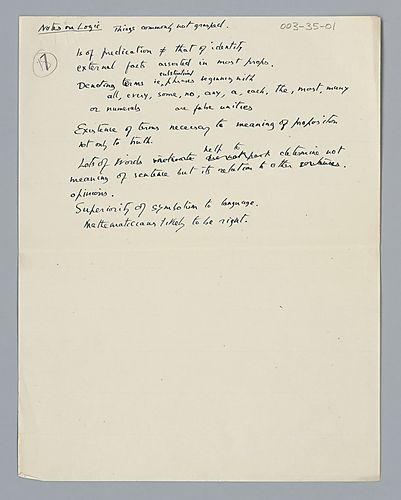 Notes on Logic Things commonly not grasped. 003-35-01
7
Is of predication ≠ that of identity
external facts asserted in most props.
substantival
Denoting terms ie, phrases beginning with
all, every, some, no, any, a, each, the, most, many
or numerals are false unities
Existence of terms necessary to meaning of proposition
not only to truth.
help to
Lots of words determine not
meaning of sentence but its relation to other sentences.
opinions.
Superiority of symbolism to language.
Mathematicians likely to be right.